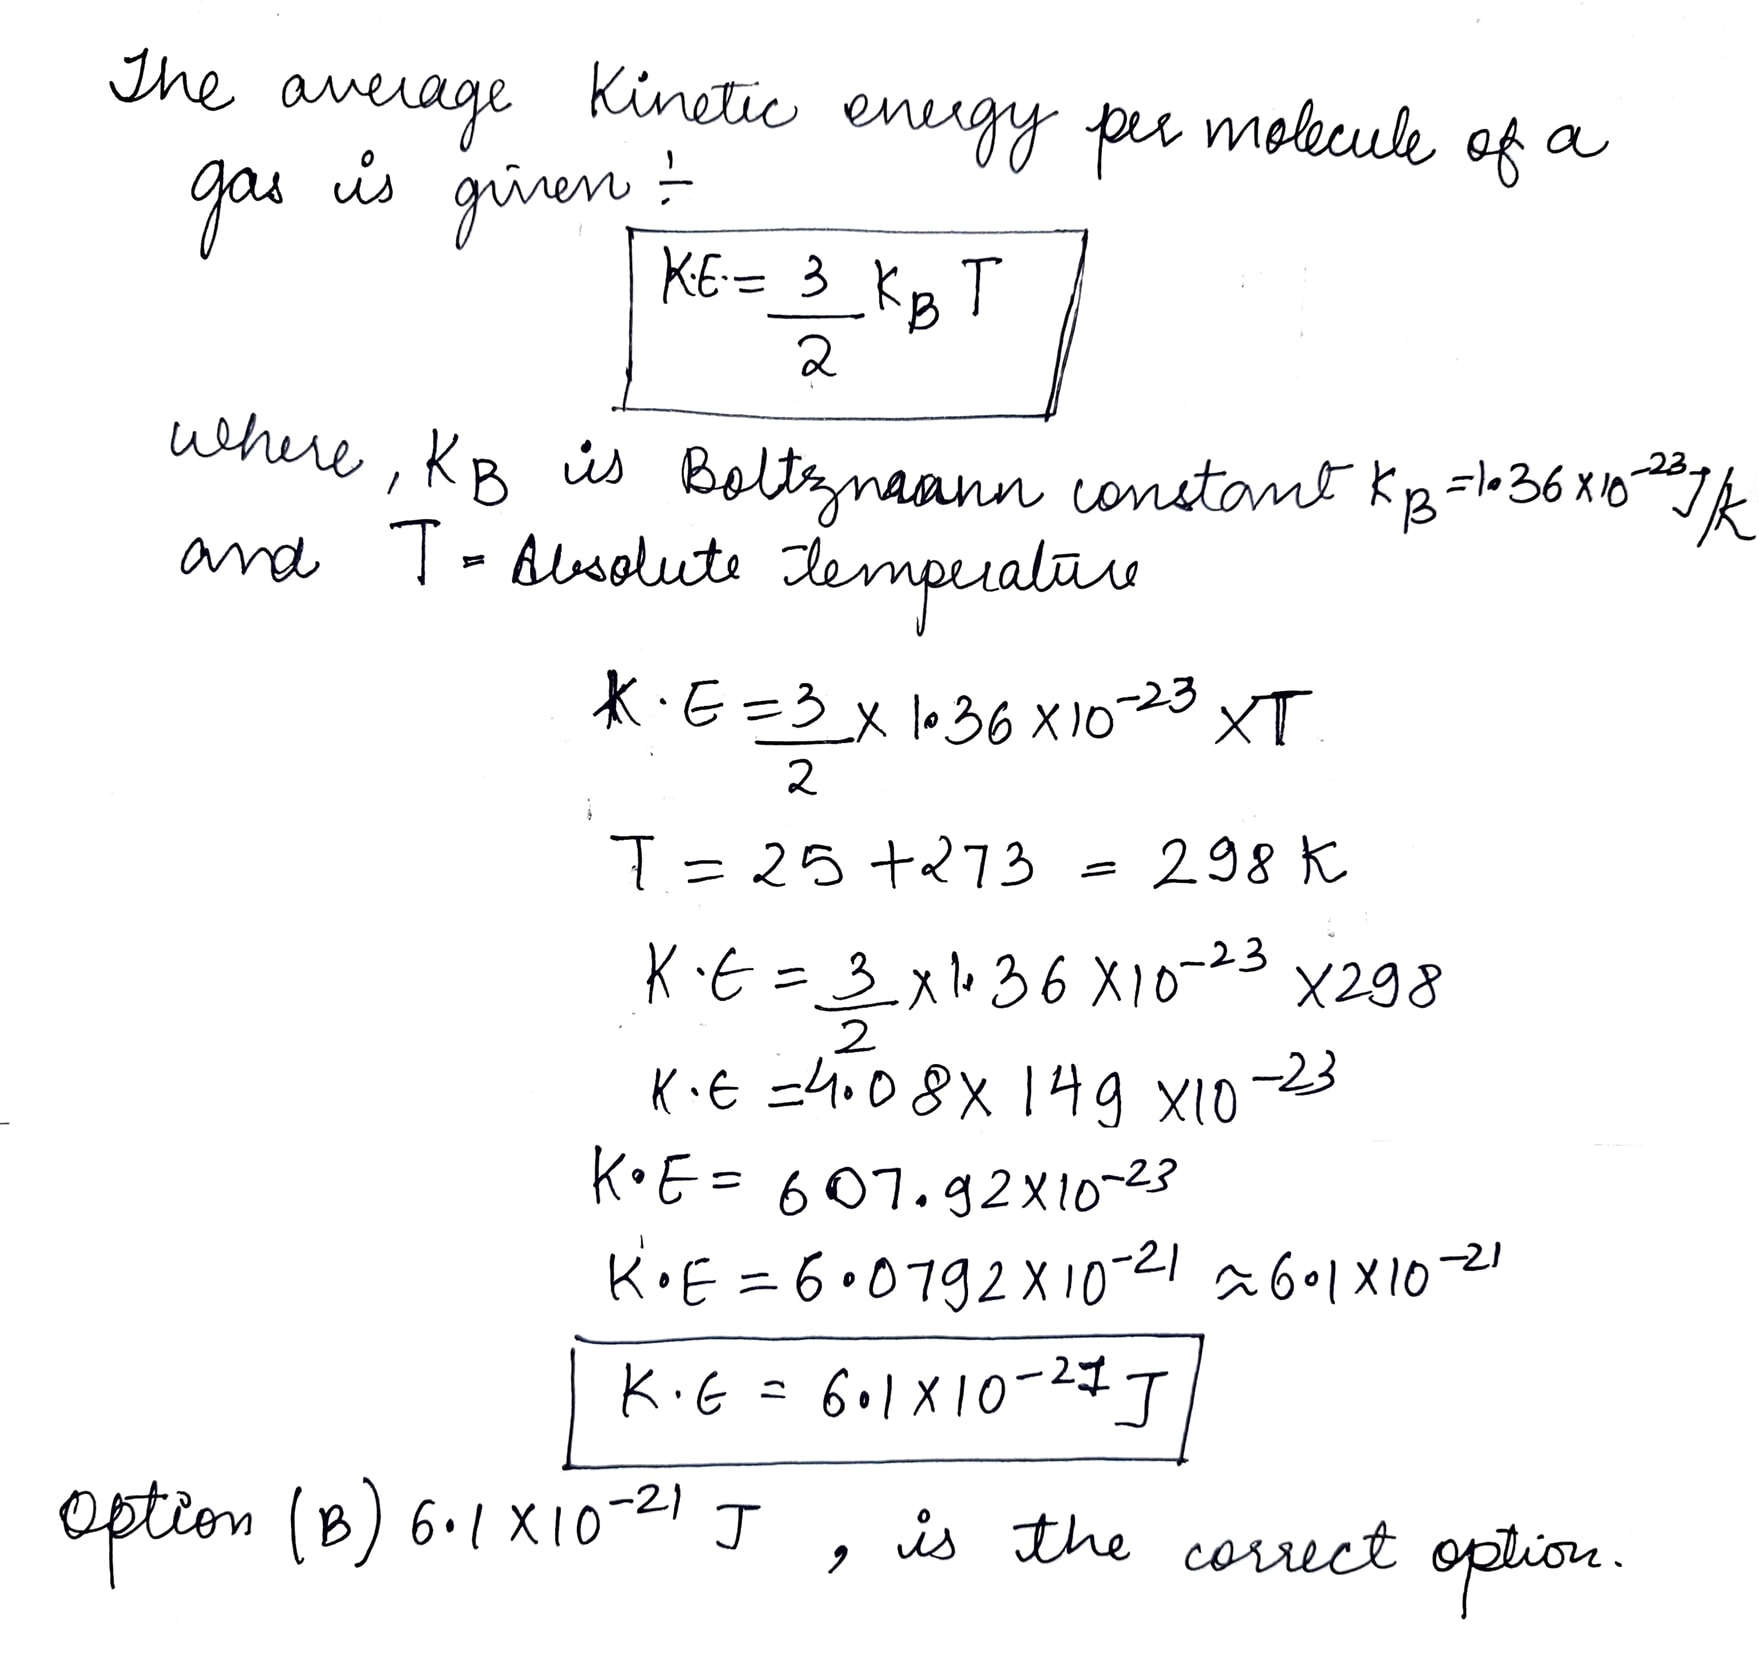 The average Kinetic energy per molecule of a
gas is given :-
K.E. = 3/2 K_B T
where, K_B is Boltzmaann constant K_B = 1.36 × 10^-23 J/k
and T = Absolute Temperature
K.E = 3/2 × 1.36 × 10^-23 × T
T = 25 + 273 = 298 K
K.E = 3/2 × 1.36 × 10^-23 × 298
K.E = 4.08 × 149 × 10^-23
K.E = 607.92 × 10^-23
K.E = 6.0792 × 10^-21 ≈ 6.1 × 10^-21
K.E = 6.1 × 10^-21 J
option (B) 6.1 × 10^-21 J , is the correct option.